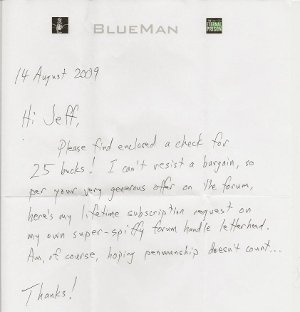 BLUEMAN
ETERNAL
PRISON
14 August 2009
Hi Jeff,
Please find enclosed a check for
25 bucks! I can't resist a bargain, so
per your very generous offer on the forum,
here's my lifetime subscription request on
my own super-spiffy forum handle letterhead.
Am, of course, hoping penmanship doesn't count...
Thanks!